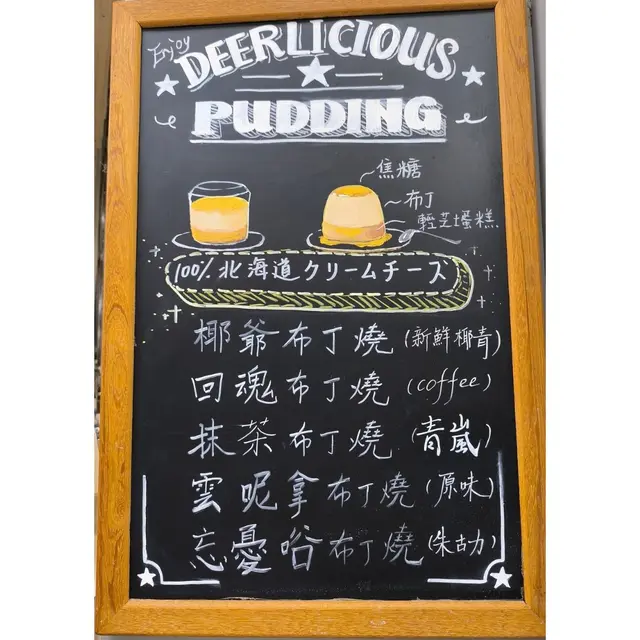 Enjoy
DEERLICIOUS
PUDDING
焦糖
布丁
輕芝蛋糕
100% 北海道クリームチーズ
椰爺布丁燒 (新鮮椰青)
回魂布丁燒 (coffee)
抹茶布丁燒 (青嵐)
雲呢拿布丁燒 (原味)
忘憂唂布丁燒 (朱古力)